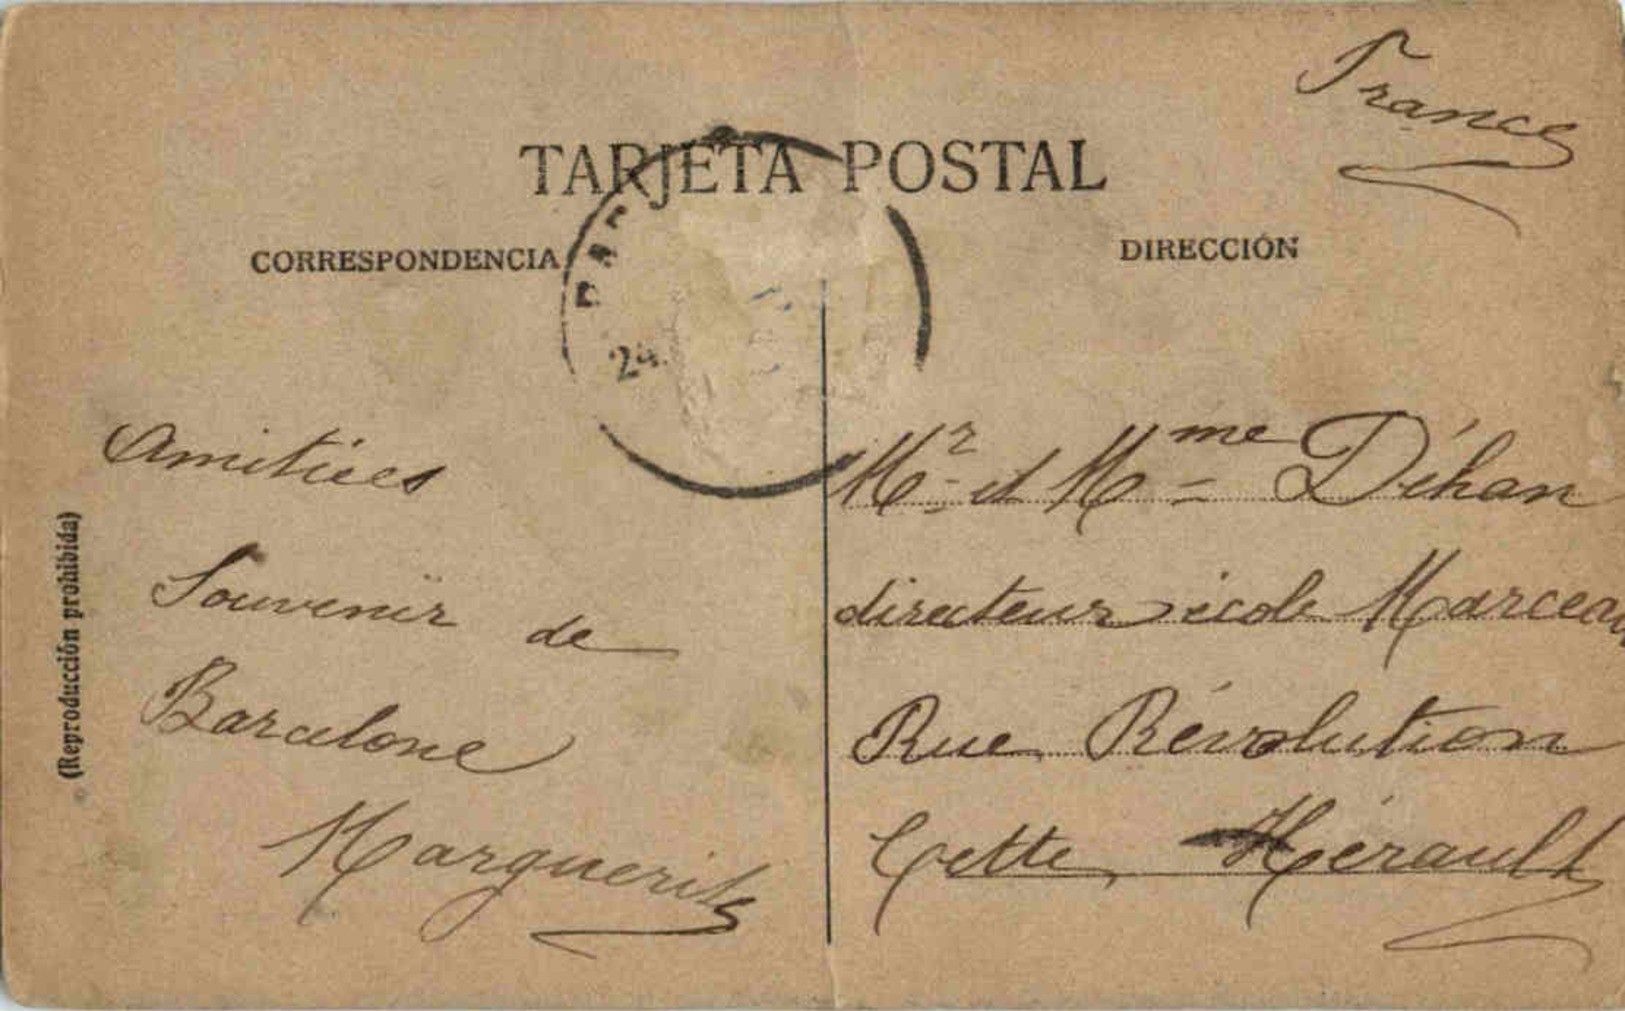 France
TARJETA POSTAL
CORRESPONDENCIA
DIRECCIÓN
24
Amitiées
Souvenir de
Barcelone
Marguerite
Mr. et Mme Déhan
directeur école Marceau
Rue Révolution
Cette Hérault
(Reproducción prohibida)